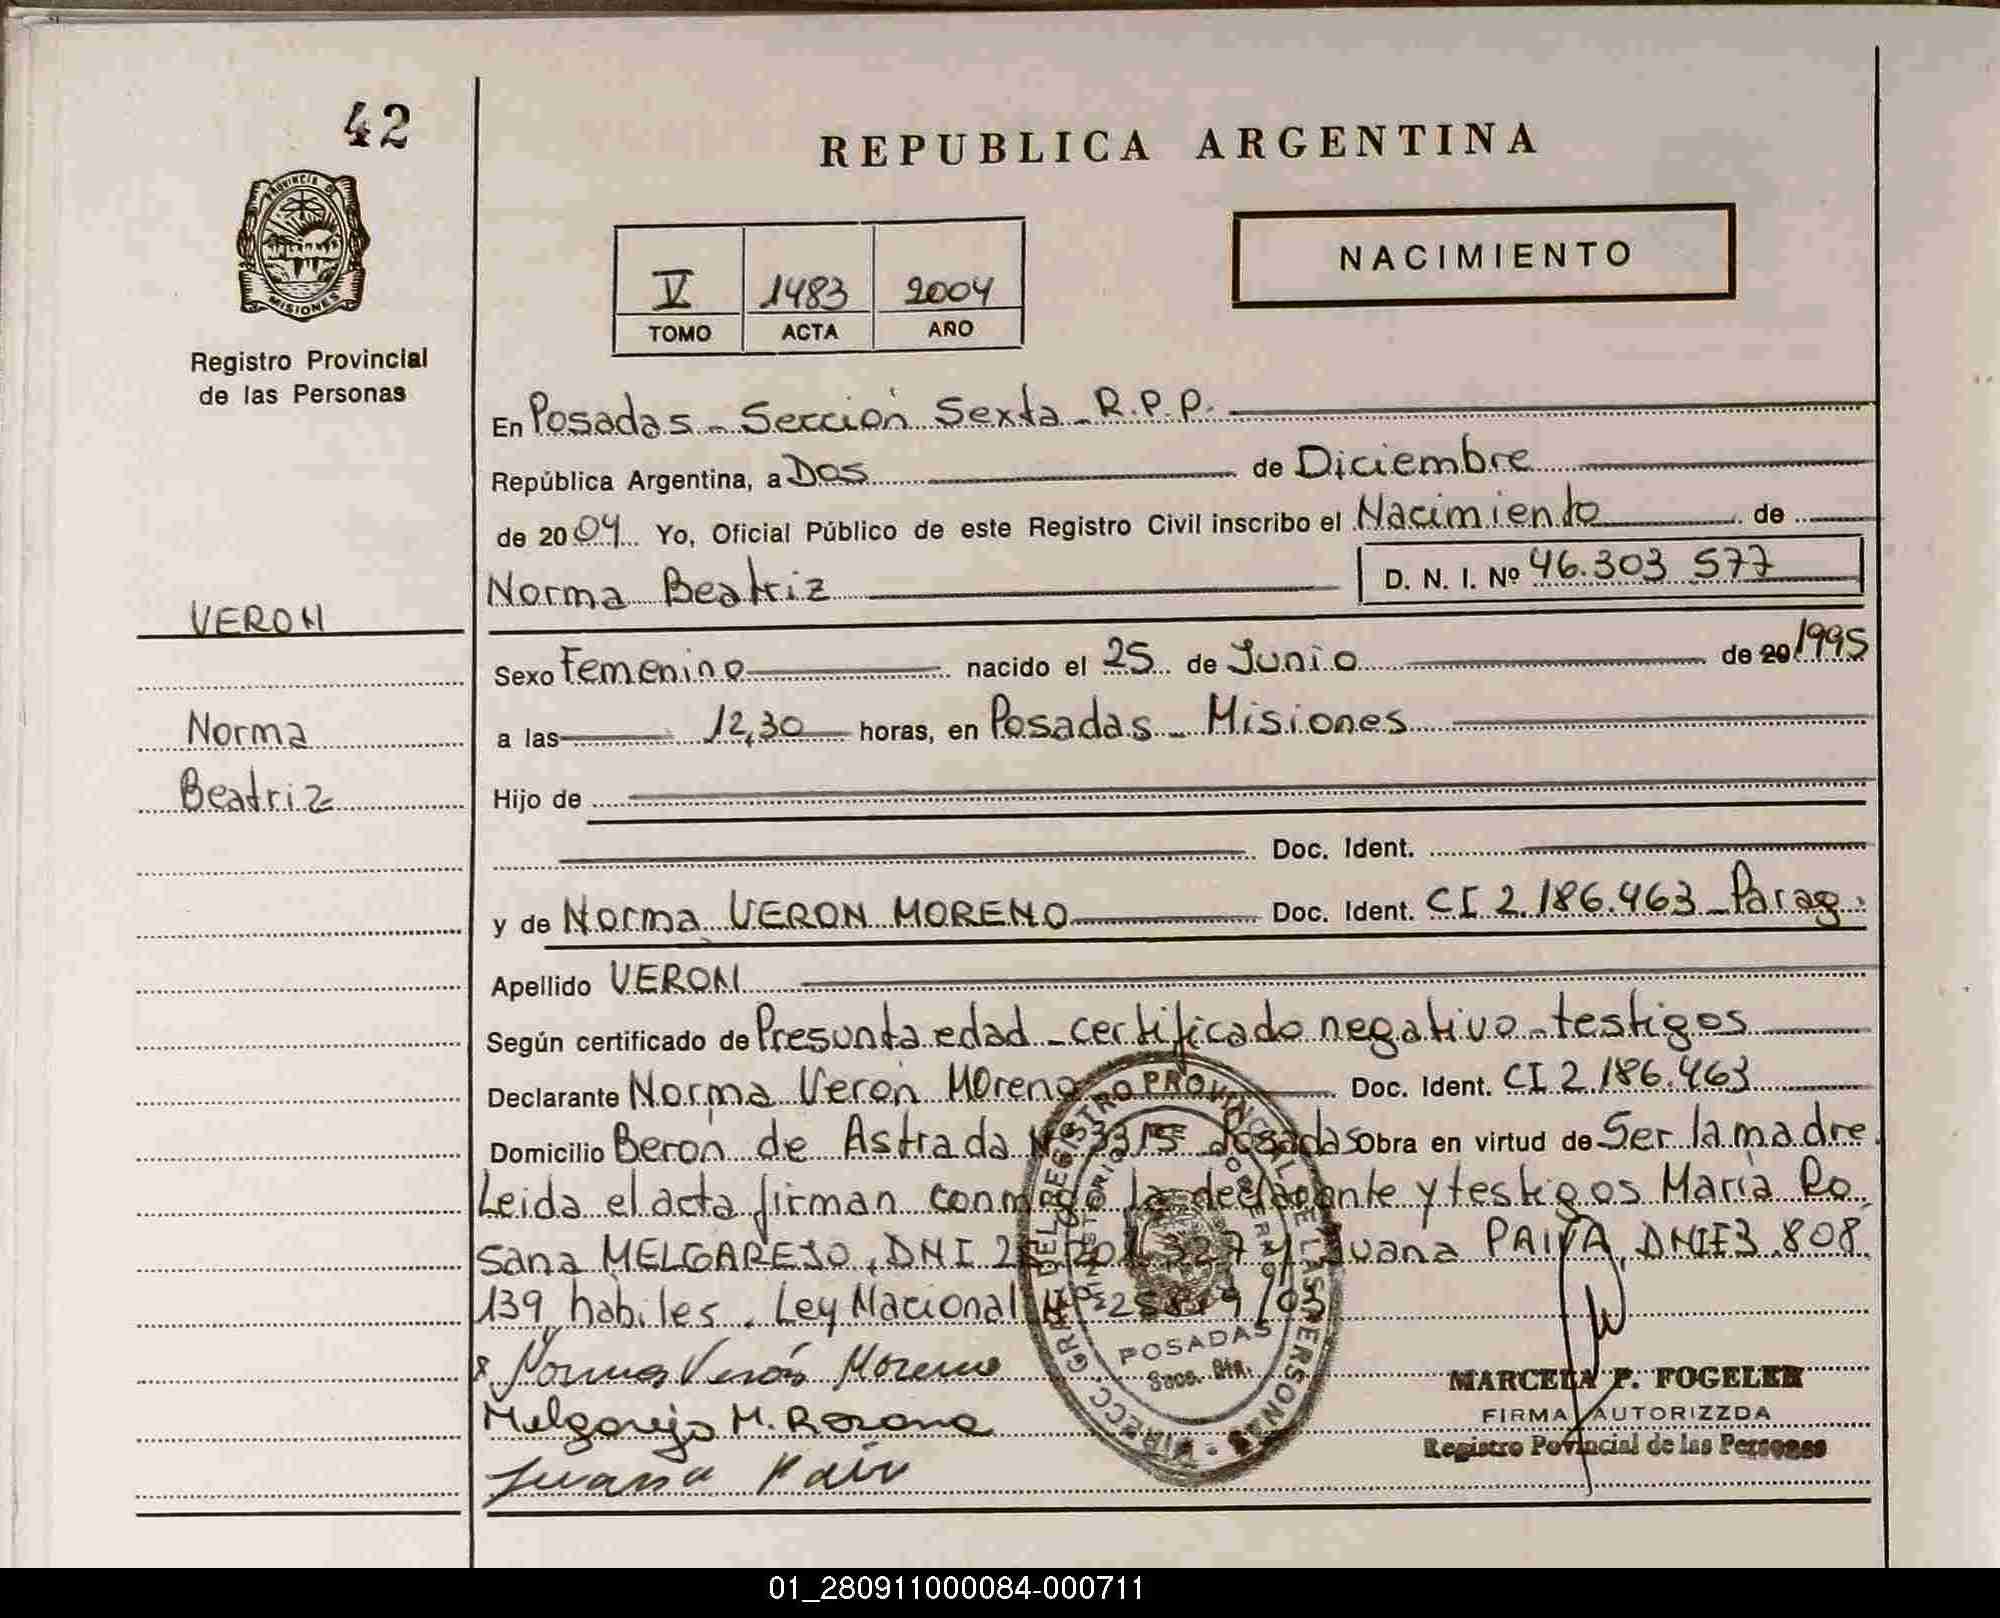 42
PROVINCIA DE
MISIONES
Registro Provincial
de las Personas
REPUBLICA ARGENTINA
NACIMIENTO
V 1483 2004
TOMO ACTA AÑO
VERON
Norma
Beatriz
En Posadas - Sección Sexta - R.P.P.
República Argentina, a Dos de Diciembre
de 2004 Yo, Oficial Público de este Registro Civil inscribo el Nacimiento de
Norma Beatriz D. N. I. Nº 46.303 577
Sexo Femenino nacido el 25 de Junio de 20 1995
a las 12,30 horas, en Posadas - Misiones
Hijo de
Doc. Ident.
y de Norma VERON MORENO Doc. Ident. CI 2.186.463 - Parag.
Apellido VERON
Según certificado de Presunta edad - certificado negativo - testigos
Declarante Norma Verón Moreno Doc. Ident. CI 2.186.463
Domicilio Berón de Astrada Nº 3315 Posadas obra en virtud de Ser la madre.
Leida el acta firman conmigo la declarante y testigos María Ro
sana MELGAREJO, DNI y Juana PAIVA, DNI 808.
139 hábiles. Ley Nacional Nº
Norma Verón Moreno
Melgarejo M. Rosana
Juana Paiv
DIRECC. GRAL. DEL REGISTRO PROVINCIAL DE LAS PERSONAS
MINISTERIO DE GOBIERNO
POSADAS
MARCELA P. FOGELER
FIRMA AUTORIZZDA
Registro Povincial de las Personas
01_280911000084-000711